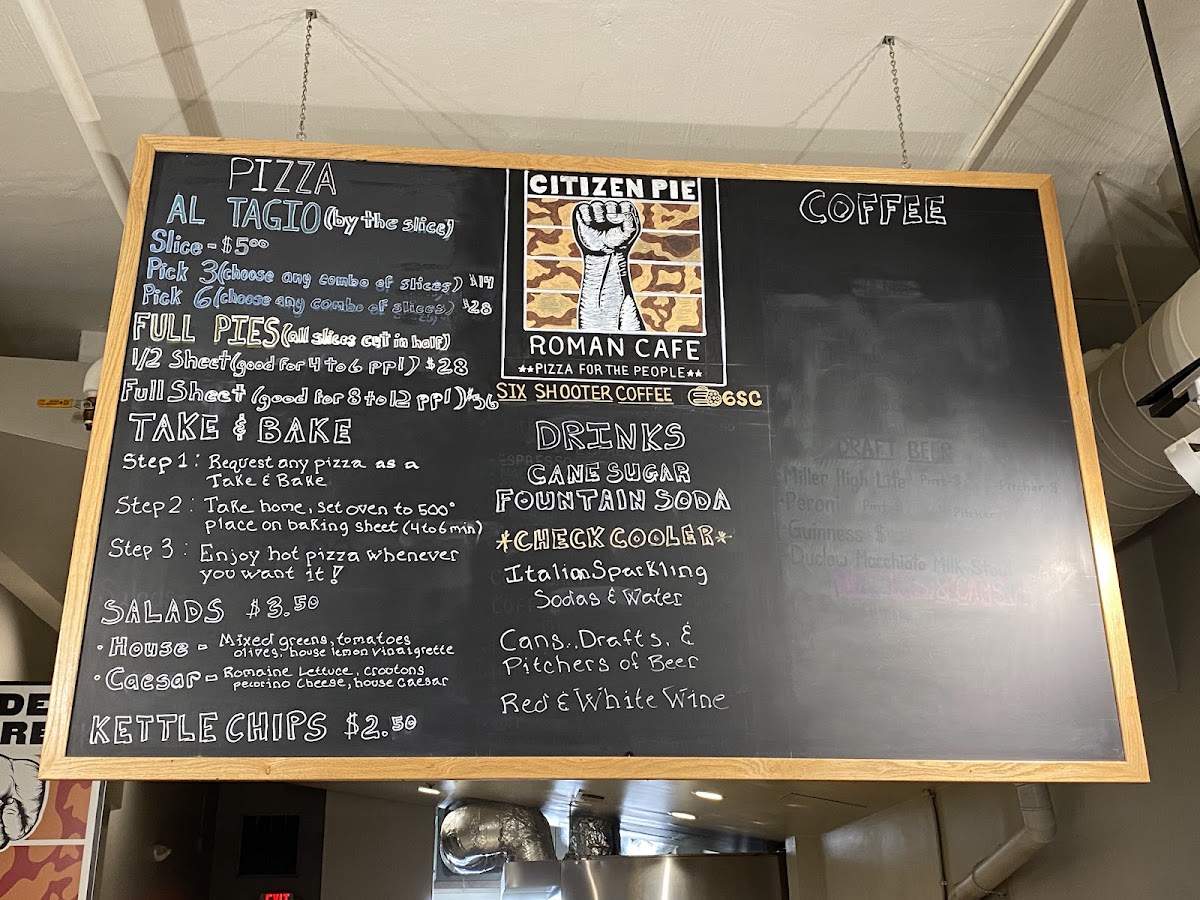 PIZZA
AL TAGIO (by the slice)
Slice - $5⁰⁰
Pick 3 (choose any combo of slices) $14
Pick 6 (choose any combo of slices) $28
FULL PIES (all slices cut in half)
1/2 Sheet (good for 4 to 6 ppl) $28
Full Sheet (good for 8 to 12 ppl) $56
TAKE & BAKE
Step 1: Request any pizza as a
Take & Bake
Step 2: Take home, set oven to 500°
place on baking sheet (4 to 6 min)
Step 3: Enjoy hot pizza whenever
you want it!
SALADS $3.50
• House - Mixed greens, tomatoes
olives, house lemon vinaigrette
• Caesar - Romaine Lettuce, crootons
pecorino cheese, house caesar
KETTLE CHIPS $2.50
CITIZEN PIE
ROMAN CAFE
**PIZZA FOR THE PEOPLE**
SIX SHOOTER COFFEE 6SC
DRINKS
CANE SUGAR
FOUNTAIN SODA
*CHECK COOLER*
Italian Sparkling
Sodas & Water
Cans, Drafts, &
Pitchers of Beer
Red & White Wine
COFFEE
DRAFT BEER
Miller High Life
Peroni
Guinness $
Duclaw Macchiato Milk
DE
RE
EXIT